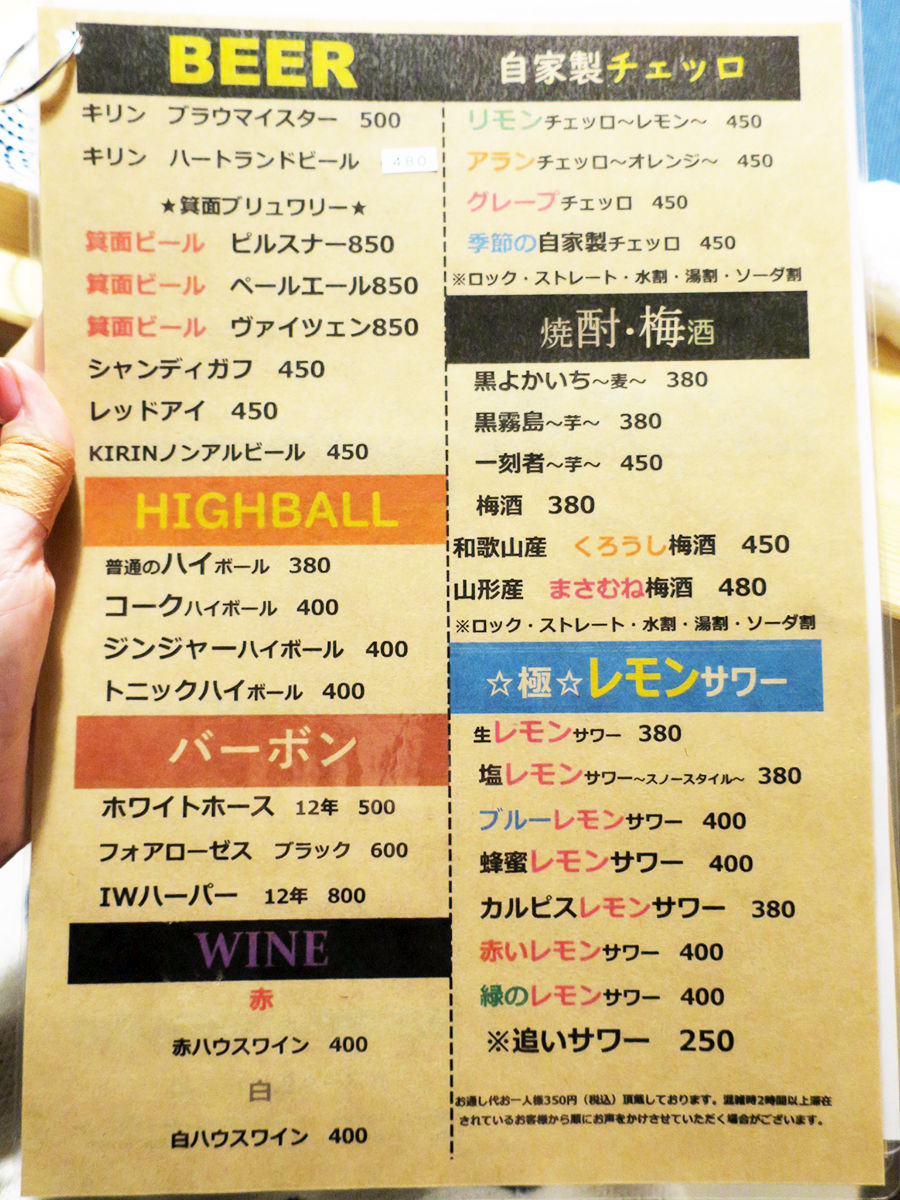 BEER
キリン ブラウマイスター 500
キリン ハートランドビール 480
★箕面ブリュワリー★
箕面ビール ピルスナー850
箕面ビール ペールエール850
箕面ビール ヴァイツェン850
シャンディガフ 450
レッドアイ 450
KIRINノンアルビール 450
HIGHBALL
普通のハイボール 380
コークハイボール 400
ジンジャーハイボール 400
トニックハイボール 400
バーボン
ホワイトホース 12年 500
フォアローゼス ブラック 600
IWハーパー 12年 800
WINE
赤
赤ハウスワイン 400
白
白ハウスワイン 400
自家製チェッロ
リモンチェッロ～レモン～ 450
アランチェッロ～オレンジ～ 450
グレープチェッロ 450
季節の自家製チェッロ 450
※ロック・ストレート・水割・湯割・ソーダ割
焼酎・梅酒
黒よかいち～麦～ 380
黒霧島～芋～ 380
一刻者～芋～ 450
梅酒 380
和歌山産 くろうし梅酒 450
山形産 まさむね梅酒 480
※ロック・ストレート・水割・湯割・ソーダ割
☆極☆レモンサワー
生レモンサワー 380
塩レモンサワー～スノースタイル～ 380
ブルーレモンサワー 400
蜂蜜レモンサワー 400
カルピスレモンサワー 380
赤いレモンサワー 400
緑のレモンサワー 400
※追いサワー 250
お通し代お一人様350円（税込）頂戴しております。混雑時2時間以上滞在
されているお客様から順にお声をかけさせていただく場合がございます。